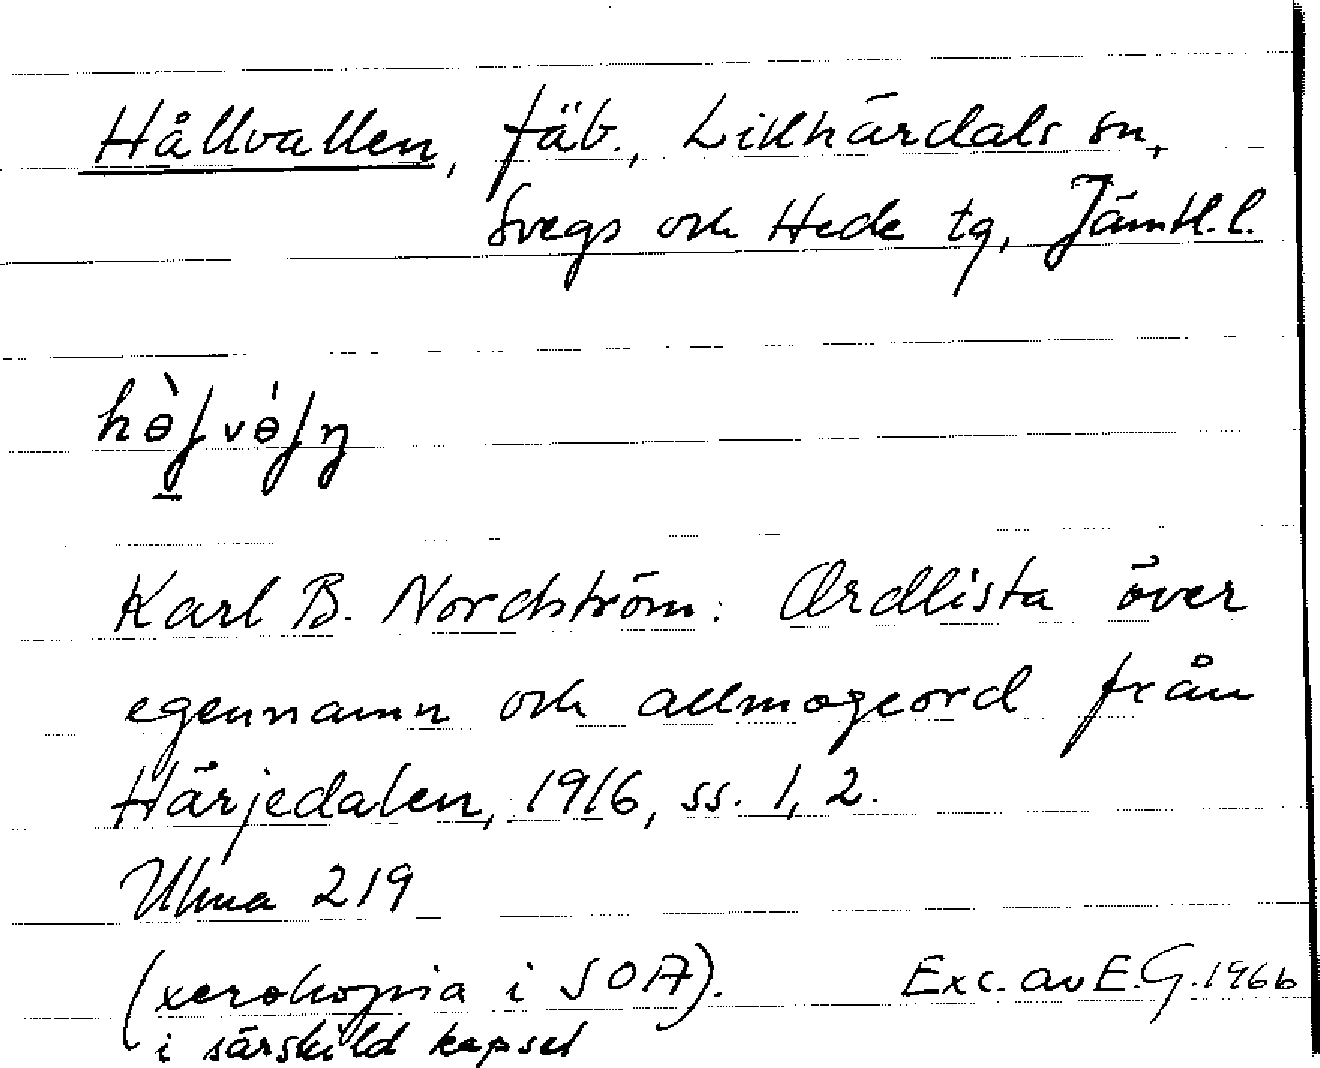 Hållvallen, fäb., Lillhärdals sn,
Svegs och Hede tg, Jämtl. l.
Karl B. Nordström: Ordlista över
egennamn och allmogeord från
Härjedalen, 1916, ss. 1, 2.
Ulma 219
(xerokopia i SOA). Exc. av E.G. 1966
i särskild kapsel